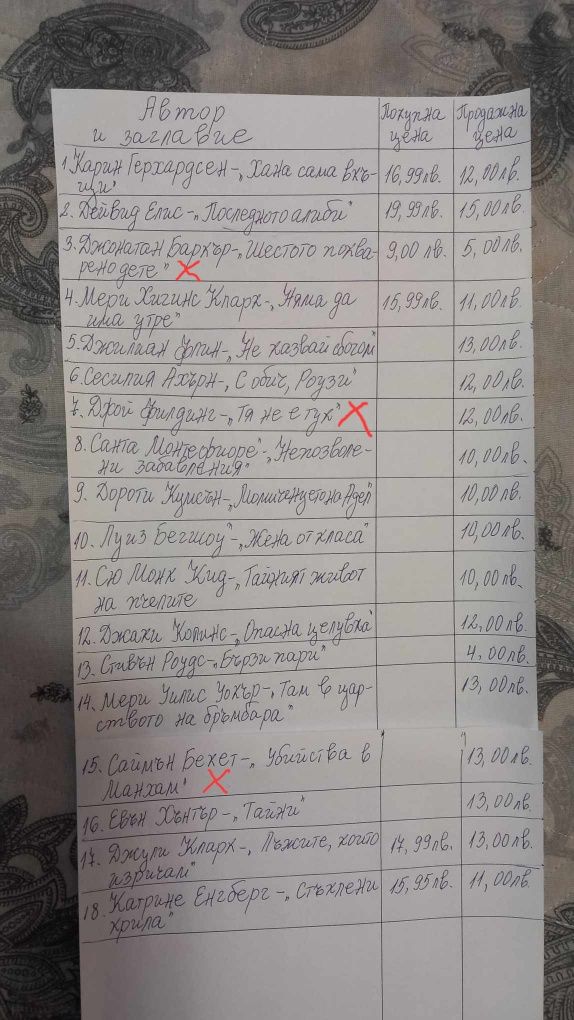 Автор
и заглавие
Покупна
цена
Продажна
цена
1. Карин Герхардсен - „Хана сама вкъ-
щи"
16,99лв.
12,00лв.
2. Дейвид Елис - „Последното алиби"
19,99лв.
15,00лв.
3. Джонатан Баркър - „Шестото поква-
рено дете"
9,00 лв.
5,00лв.
4. Мери Хигинс Кларк - „Няма да
има утре"
15,99лв.
11,00лв.
5. Джилиан Флин - „Не казвай сбогом"
13,00лв.
6. Сесилия Ахърн - „С обич, Роузи"
12,00лв.
7. Джой Филдинг - „Тя не е тук"
12,00лв.
8. Санта Монтефиоре" - „Непозволе-
ни забавления"
10,00лв.
9. Дороти Кумсън - „Момиченцето на Адел"
10,00лв.
10. Луиз Бегшоу" - „Жена от класа"
10,00лв.
11. Сю Монк Кид - „Тайният живот
на пчелите
10,00лв.
12. Джаки Колинс - „Опасна целувка"
12,00лв.
13. Стивън Роудс - „Бързи пари"
4,00лв.
14. Мери Уилис Уокър - „Там в цар-
ството на бръмбара"
13,00лв.
15. Саймън Бекет - „Убийства в
Манхам"
13,00лв.
16. Евън Хънтър - „Тайни"
13,00лв.
17. Джули Кларк - „Лъжите, които
изричам"
17,99лв.
13,00лв.
18. Катрине Енгберг - „Стъклени
крила"
15,95лв.
11,00лв.